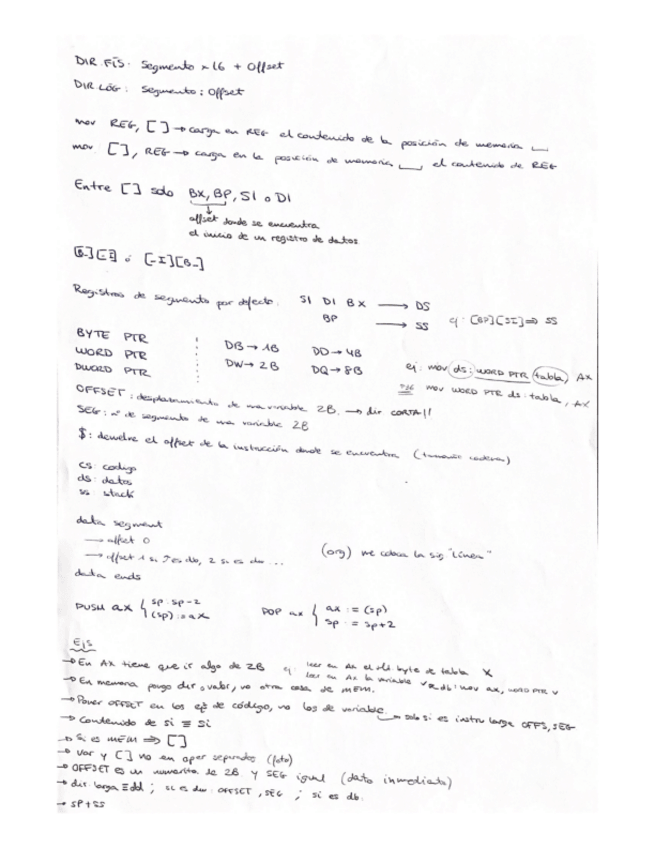 DIR. FÍS: Segmento x 16 + Offset
DIR. LÓG: Segmento : Offset
mov REG, [ ] → carga en REG el contenido de la posición de memoria
mov [ ], REG → carga en la posición de memoria el contenido de REG
Entre [ ] solo BX, BP, SI o DI
offset donde se encuentra
el inicio de un registro de datos
[B-][-I] ó [-I][B-]
Registros de segmento por defecto: SI DI BX → DS
BP → SS ej: [BP][SI] ⇒ SS
BYTE PTR
WORD PTR
DWORD PTR
DB → 1B DD → 4B
DW → 2B DQ → 8B
ej: mov ds: WORD PTR tabla, AX
mov WORD PTR ds: tabla, AX
OFFSET: desplazamiento de una variable 2B. → dir CORTA!!
SEG: nº de segmento de una variable 2B
$: devuelve el offset de la instrucción donde se encuentra (tamaño cadena)
cs: codigo
ds: datos
ss stack
data segment
→ offset 0
→ offset 1 si es db, 2 si es dw ...
(org) me coloca la sig "línea"
data ends
PUSH ax { sp = sp-2
(sp) := ax
POP ax { ax := (sp)
sp := sp+2
EJS
→ En AX tiene que ir algo de 2B ej: leer en AX el byte de tabla X
leer en AX la variable v db: mov ax, WORD PTR v
→ En memoria pongo dir o valor, no otra cosa de MEM.
→ Poner OFFSET en los ej de código, no los de variable. → solo si es instru larga OFFS, SEG
→ Contenido de si ≡ si
→ Si es MEM ⇒ [ ]
→ Var y [ ] no en oper separados (foto)
→ OFFSET es un numerito de 2B y SEG igual (dato inmediato)
→ dir. larga ≡ dd ; si es dw: OFFSET, SEG ; si es db:
→ SP+SS